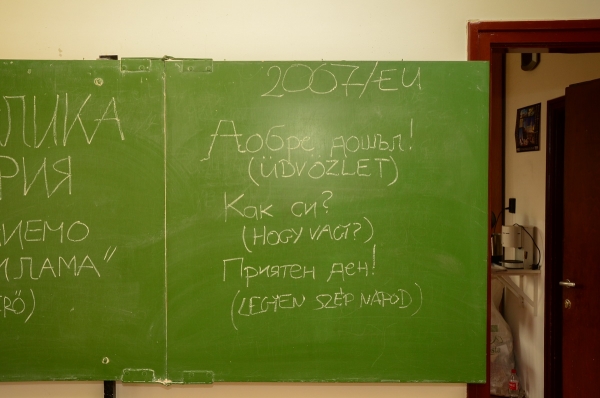 ЛИКА
РИЯ
ИЕМО
ИЛАМА"
ERŐ)
2007/EU
Добре дошъл!
(ÜDVÖZLET)
Как си?
(HOGY VAGY?)
Приятен ден!
(LEGYEN SZÉP NAPOD)